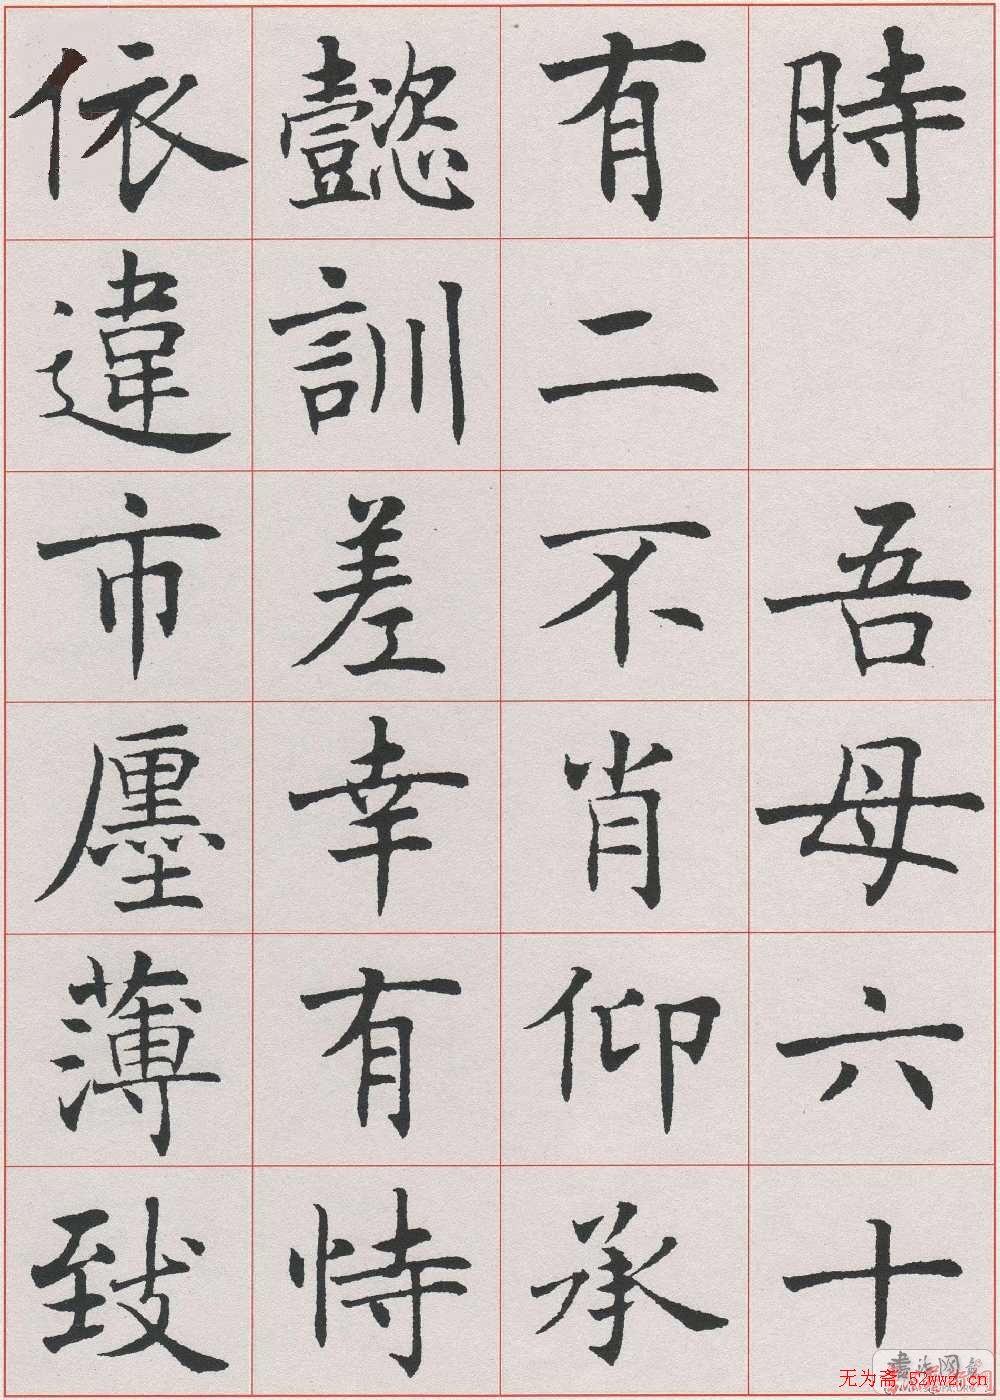 時　吾母六十
有二不肖仰承
懿訓差幸有恃
依違市廛薄致
无为斋 52wwz.cn